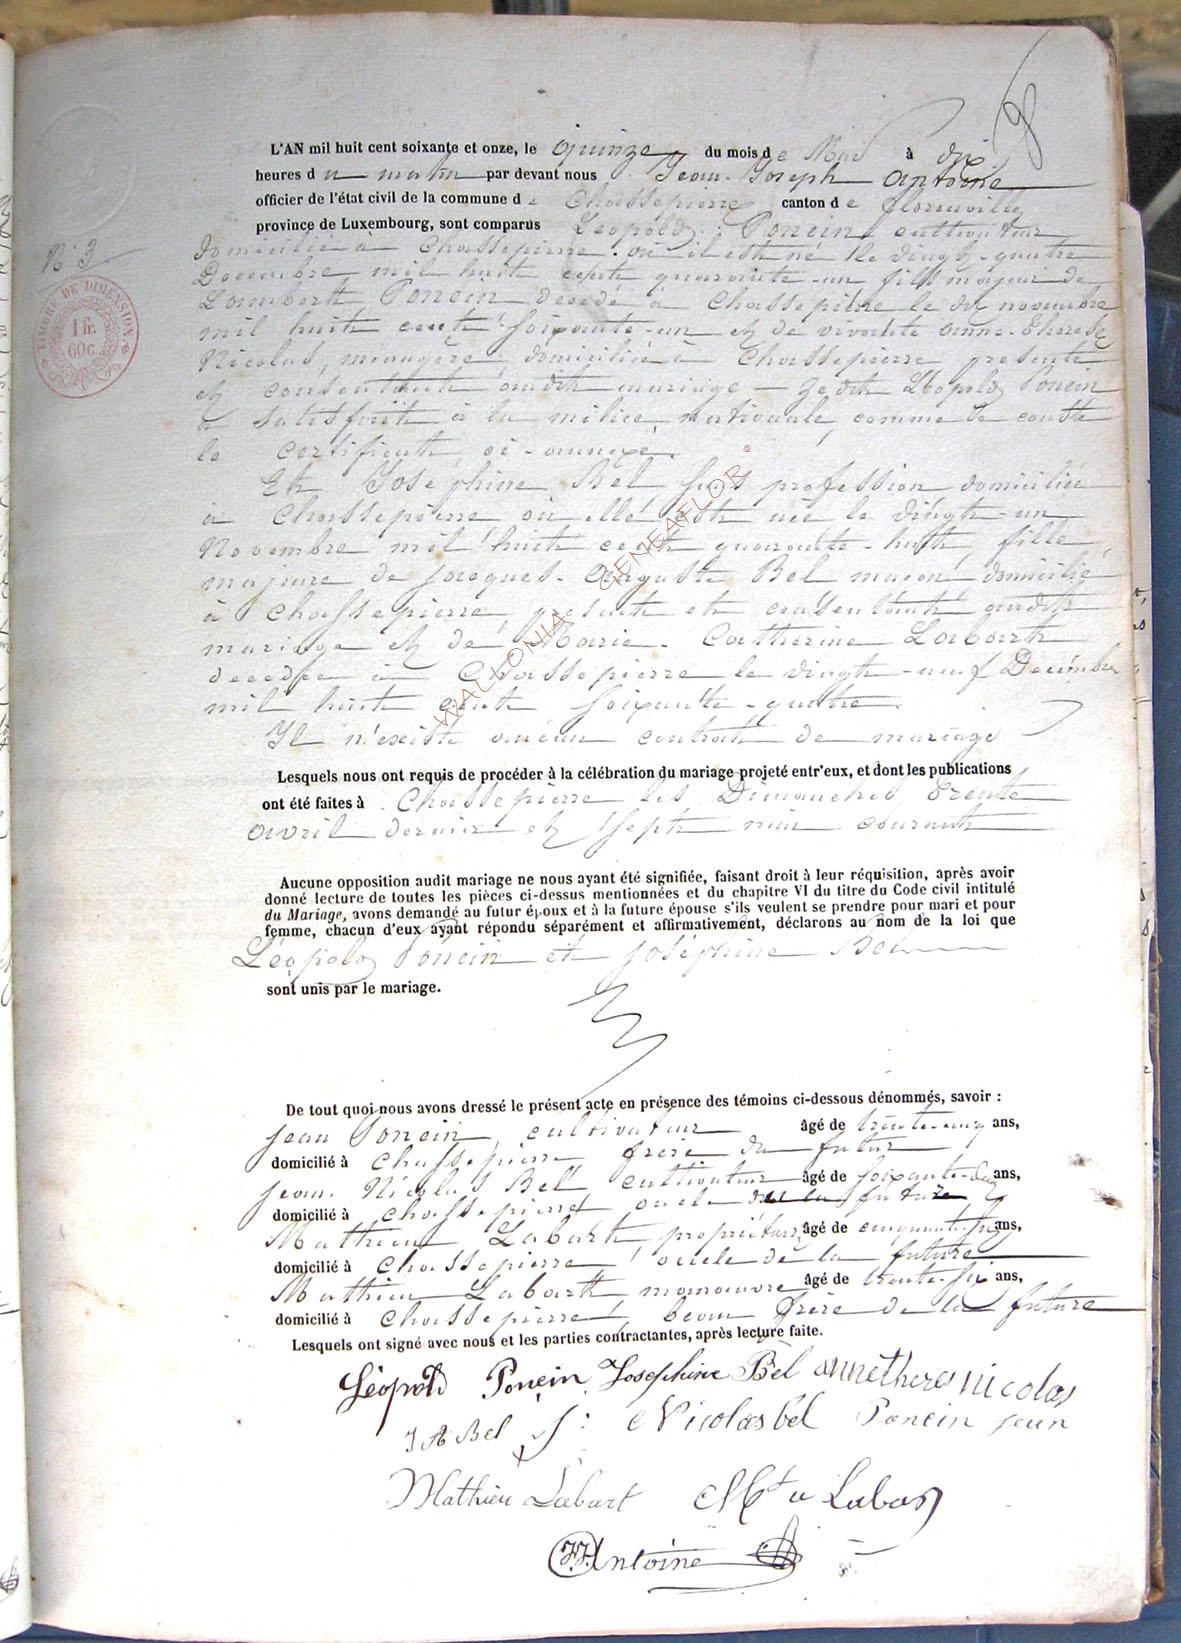 L'AN mil huit cent soixante et onze, le quinze du mois de Mai à dix
heures du matin par devant nous Jean-Joseph Antoine
officier de l'état civil de la commune de Chassepierre canton de florenville
province de Luxembourg, sont comparus Léopold Poncin cultivateur
N° 3
domicilié à Chassepierre où il est né le vingt-quatre
Decembre mil huit cent quarante-un fils majeur de
Lambert Poncin décédé à Chassepierre le dix novembre
mil huit cent soixante-un et de vivante anne-therese
Nicolas, ménagère domiciliée à Chassepierre presente
et consentante audit mariage — Ledit Léopold Poncin
a satisfait à la milice nationale, comme le conste
le certificat ci-annexé.
TIMBRE DE DIMENSION
1 fr.
60 c.
Et Joséphine Bel sans profession domiciliée
à Chassepierre où elle est née le vingt-un
Novembre mil huit cent quarante-huit, fille
majeure de jacques-Auguste Bel maçon domicilié
à Chassepierre, présent et consentant audit
mariage et de Marie-Catherine Labart
decedée à Chassepierre le vingt-neuf Decembre
mil huit cent soixante-quatre.
Il n'existe aucun contrat de mariage
WALLONIA GENEAFLOR ©
Lesquels nous ont requis de procéder à la célébration du mariage projeté entr'eux, et dont les publications
ont été faites à Chassepierre les Dimanches trente
avril dernier et sept mai courant
Aucune opposition audit mariage ne nous ayant été signifiée, faisant droit à leur réquisition, après avoir
donné lecture de toutes les pièces ci-dessus mentionnées et du chapitre VI du titre du Code civil intitulé
du Mariage, avons demandé au futur époux et à la future épouse s'ils veulent se prendre pour mari et pour
femme, chacun d'eux ayant répondu séparément et affirmativement, déclarons au nom de la loi que
Léopold Poncin et joséphine Bel
sont unis par le mariage.
De tout quoi nous avons dressé le présent acte en présence des témoins ci-dessous dénommés, savoir :
jean Poncin, cultivateur âgé de trente-cinq ans,
domicilié à Chassepierre frère du futur
jean-Nicolas Bel cultivateur âgé de soixante-deux ans,
domicilié à Chassepierre oncle de la future
Mathieu Labart propriétaire âgé de cinquante-six ans,
domicilié à Chassepierre oncle de la future
Mathieu Labart manoeuvre âgé de trente-six ans,
domicilié à Chassepierre, beau frère de la future
Lesquels ont signé avec nous et les parties contractantes, après lecture faite.
Léopold Poncin Josephine Bel annetheres nicolas
J A Bel J: Nicolas bel Poncin jean
Mathieu Labart Mt u Labar
J.J. Antoine